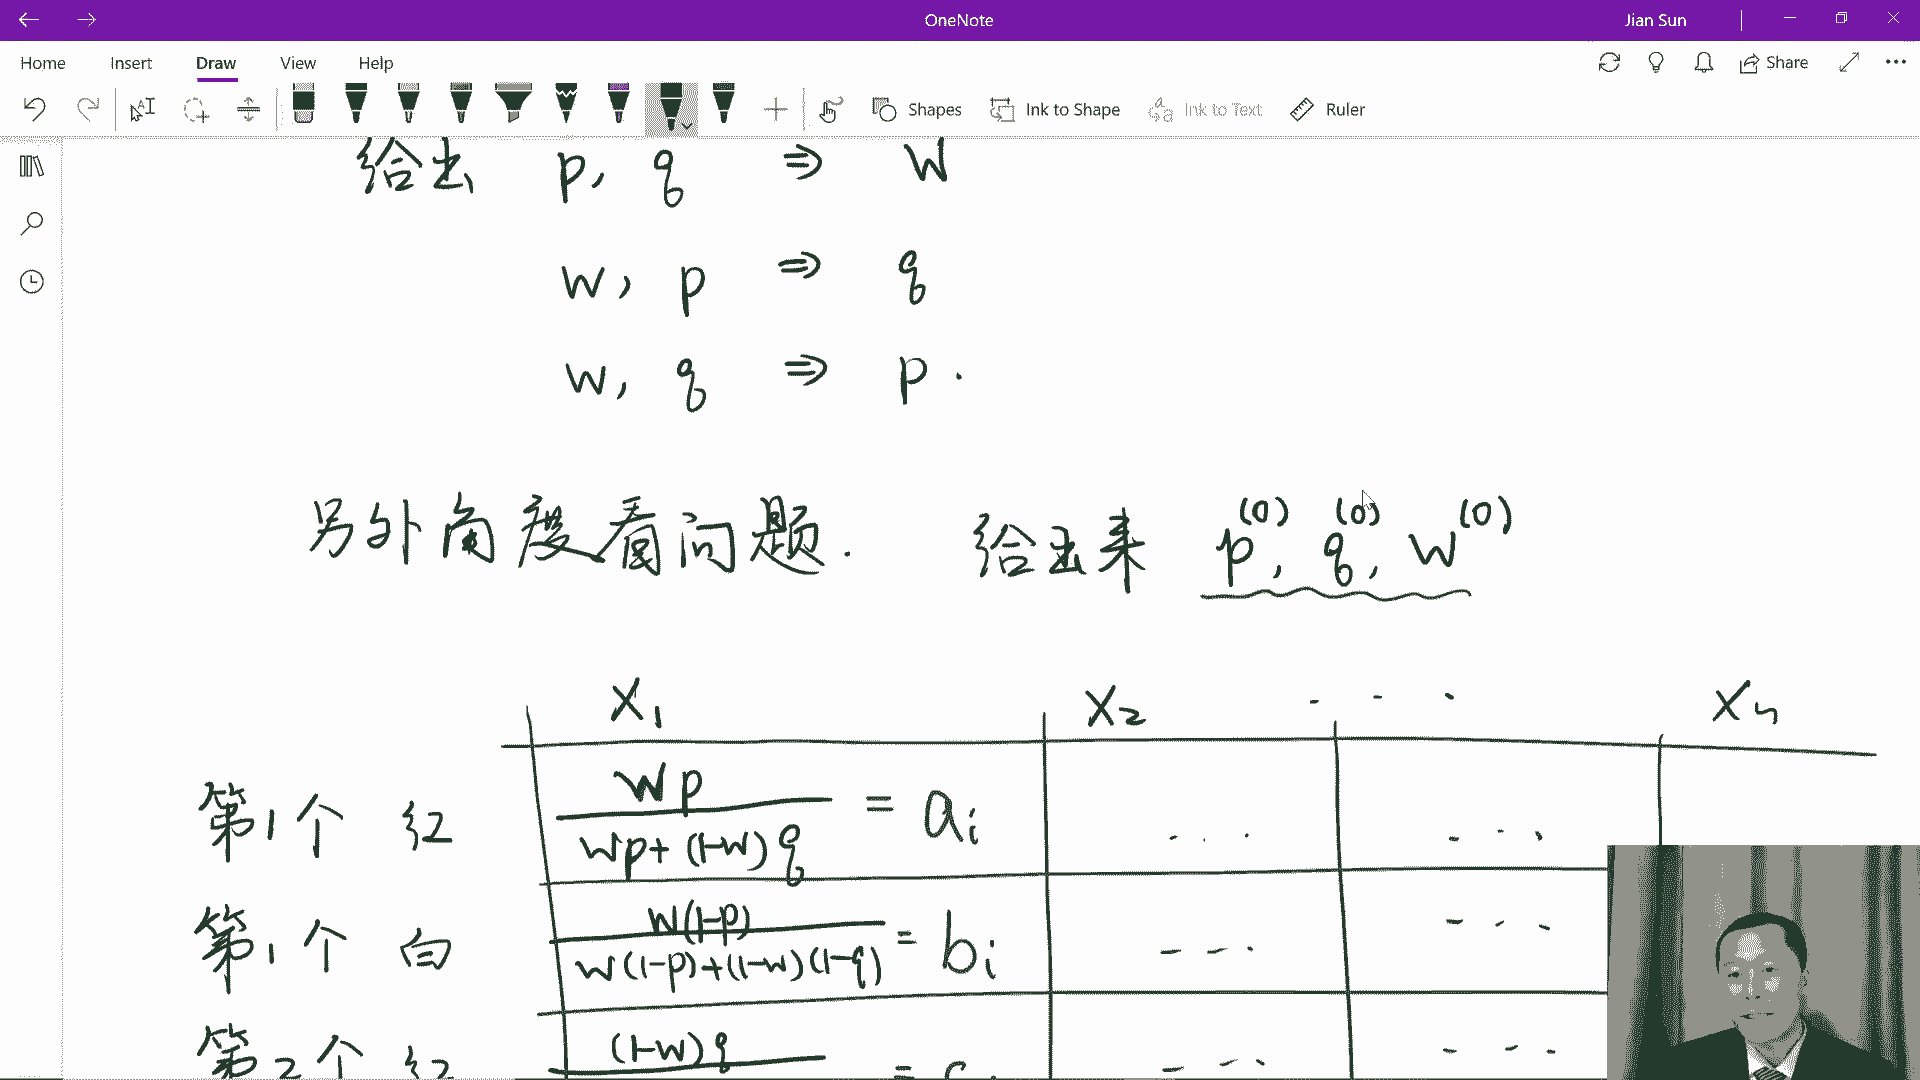 OneNote
Jian Sun
Home Insert Draw View Help
Share
Shapes Ink to Shape Ink to Text Ruler
给出 p, q ⇒ w
w, p ⇒ q
w, q ⇒ p.
另外角度看问题. 给出来 p^(0), q^(0), w^(0)
x₁ x₂ · · · xₙ
第1个 红 wp / (wp+(1-w)q) = aᵢ ... ...
第1个 白 w(1-p) / (w(1-p)+(1-w)(1-q)) = bᵢ ... ...
第2个 红 (1-w)q = ... ...